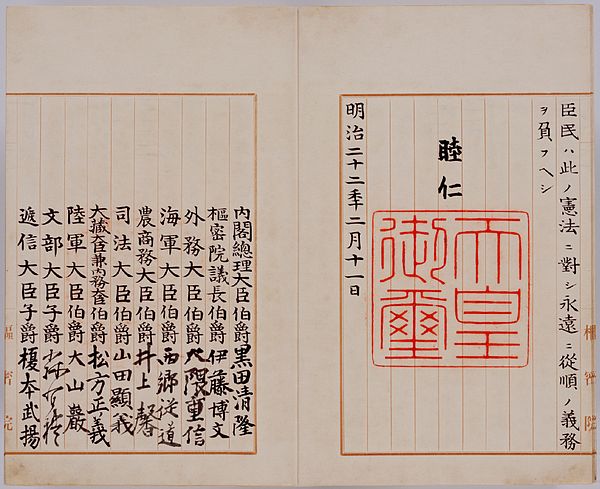 臣民ハ此ノ憲法ニ對シ永遠ニ從順ノ義務
ヲ負フヘシ
睦仁
天皇
御璽
明治二十二年二月十一日
內閣總理大臣伯爵黒田清隆
樞密院議長伯爵伊藤博文
外務大臣伯爵大隈重信
海軍大臣伯爵西郷從道
農商務大臣伯爵井上馨
司法大臣伯爵山田顯義
大藏大臣兼內務大臣伯爵松方正義
陸軍大臣伯爵大山巖
文部大臣子爵森有禮
遞信大臣子爵榎本武揚
樞密院
樞密院